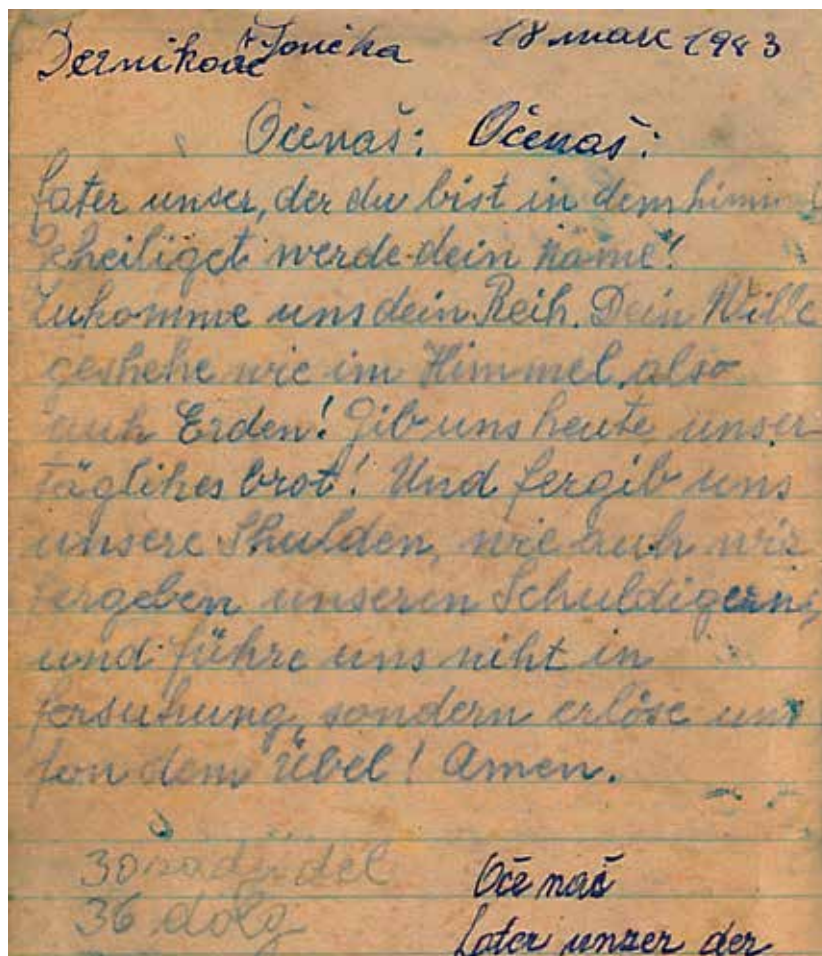 Jonička 18 mare 1983
Očenaš: Očenaš:
fater unser, der du bist in dem
geheiliget werde dein Name!
Zukomme uns dein Reih. Dein Wille
geshehe wie im Himmel, also
auh Erden! Gib uns heute unser
täglihes brot! Und fergib uns
unsere Shulden, wie auh wir
fergeben unseren Schuldigern,
und führe uns niht in
fersuhung, sondern erlöse uns
fon dem Übel! Amen.
30 del
36 dolg
Oče naš
fater unzer der